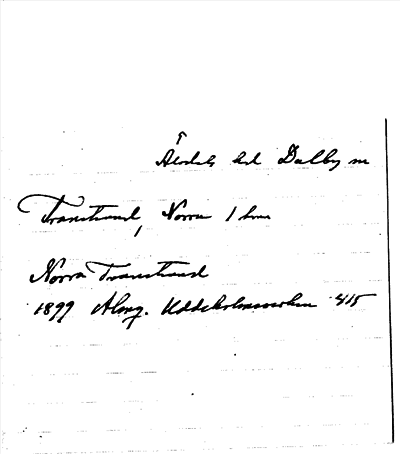 Älvdals hd Dalby sn
Transtrand, Norra 1 hmn
Norra Transtrand
1899 Almq. Uddeholmsverken 415